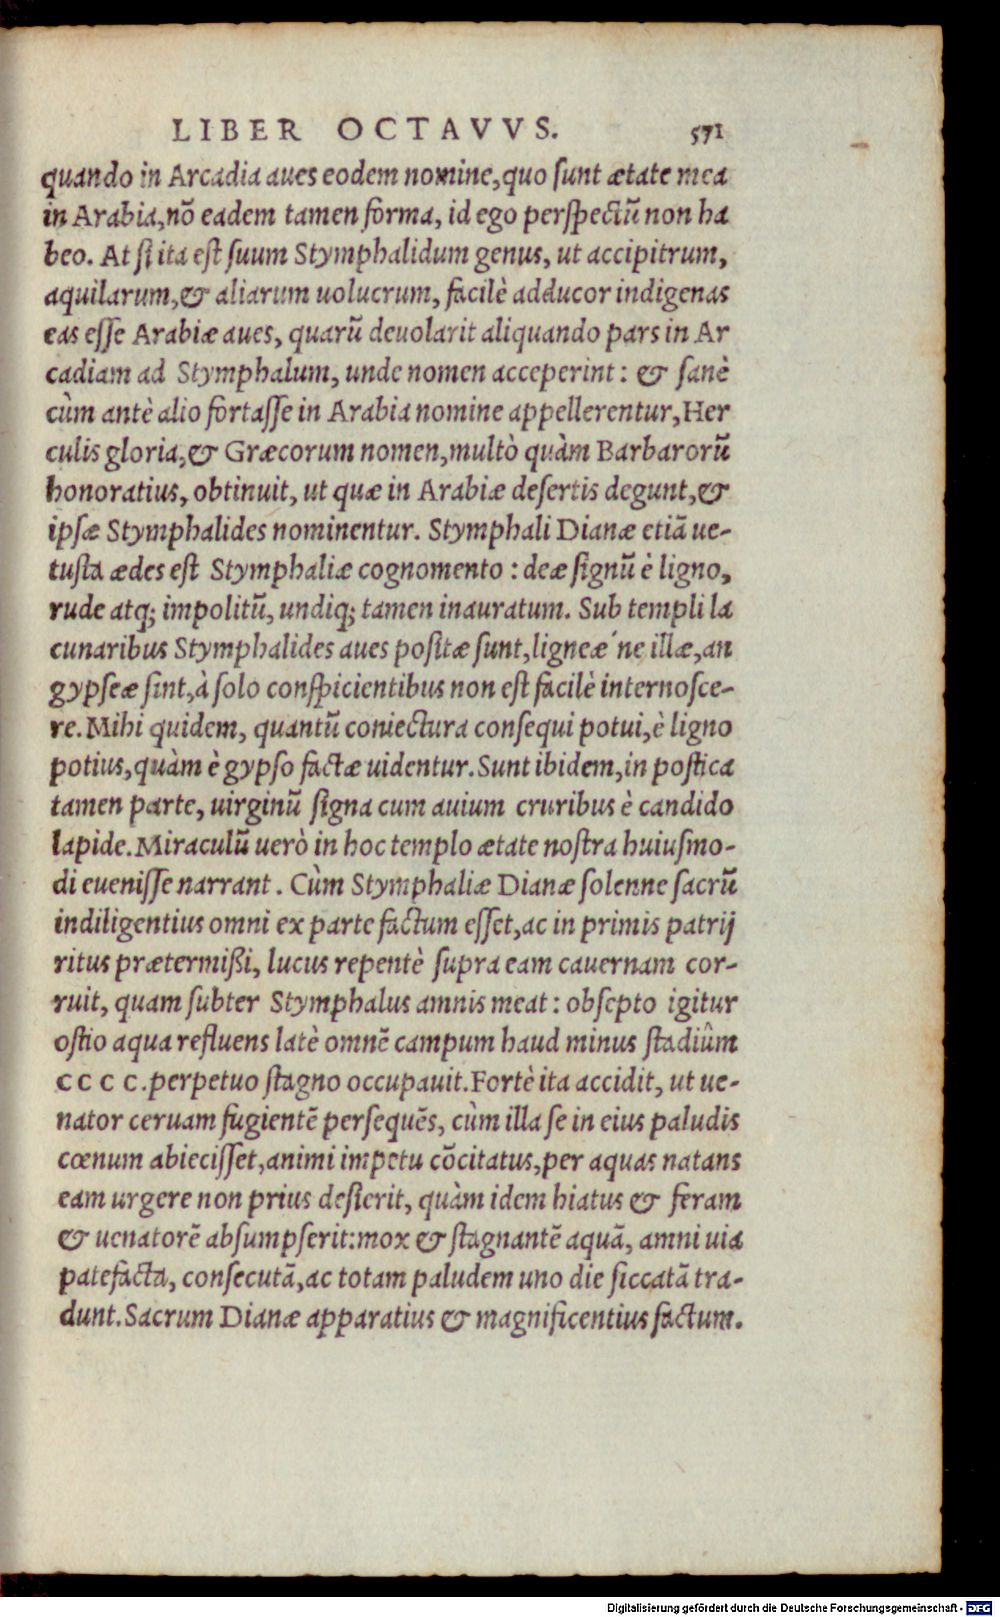 LIBER OCTAVVS. 571
quando in Arcadia aues eodem nomine, quo sunt ætate mea
in Arabia, nõ eadem tamen forma, id ego perspectũ non ha
beo. At si ita est suum Stymphalidum genus, ut accipitrum,
aquilarum, & aliarum uolucrum, facilè adducor indigenas
eas esse Arabiæ aues, quarũ deuolarit aliquando pars in Ar
cadiam ad Stymphalum, unde nomen acceperint: & sanè
cùm antè alio fortasse in Arabia nomine appellerentur, Her
culis gloria, & Græcorum nomen, multò quàm Barbarorũ
honoratius, obtinuit, ut quæ in Arabiæ desertis degunt, &
ipsæ Stymphalides nominentur. Stymphali Dianæ etiã ue-
tusta ædes est Stymphaliæ cognomento: deæ signũ è ligno,
rude atq; impolitũ, undiq; tamen inauratum. Sub templi la
cunaribus Stymphalides aues positæ sunt, ligneæ´ ne illæ, an
gypseæ sint, à solo conspicientibus non est facilè internosce-
re. Mihi quidem, quantũ coniectura consequi potui, è ligno
potius, quàm è gypso factæ uidentur. Sunt ibidem, in postica
tamen parte, uirginũ signa cum auium cruribus è candido
lapide. Miraculũ uerò in hoc templo ætate nostra huiusmo-
di euenisse narrant. Cùm Stymphaliæ Dianæ solenne sacrũ
indiligentius omni ex parte factum esset, ac in primis patrij
ritus prætermißi, lucus repentè supra eam cauernam cor-
ruit, quam subter Stymphalus amnis meat: obsepto igitur
ostio aqua refluens latè omnẽ campum haud minus stadiûm
CCCC. perpetuo stagno occupauit. Fortè ita accidit, ut ue-
nator ceruam fugientẽ persequẽs, cùm illa se in eius paludis
cœnum abiecisset, animi impetu cõcitatus, per aquas natans
eam urgere non prius desierit, quàm idem hiatus & feram
& uenatorẽ absumpserit: mox & stagnantẽ aquã, amni uia
patefacta, consecutã, ac totam paludem uno die siccatã tra-
dunt. Sacrum Dianæ apparatius & magnificentius factum.
Digitalisierung gefördert durch die Deutsche Forschungsgemeinschaft - DFG